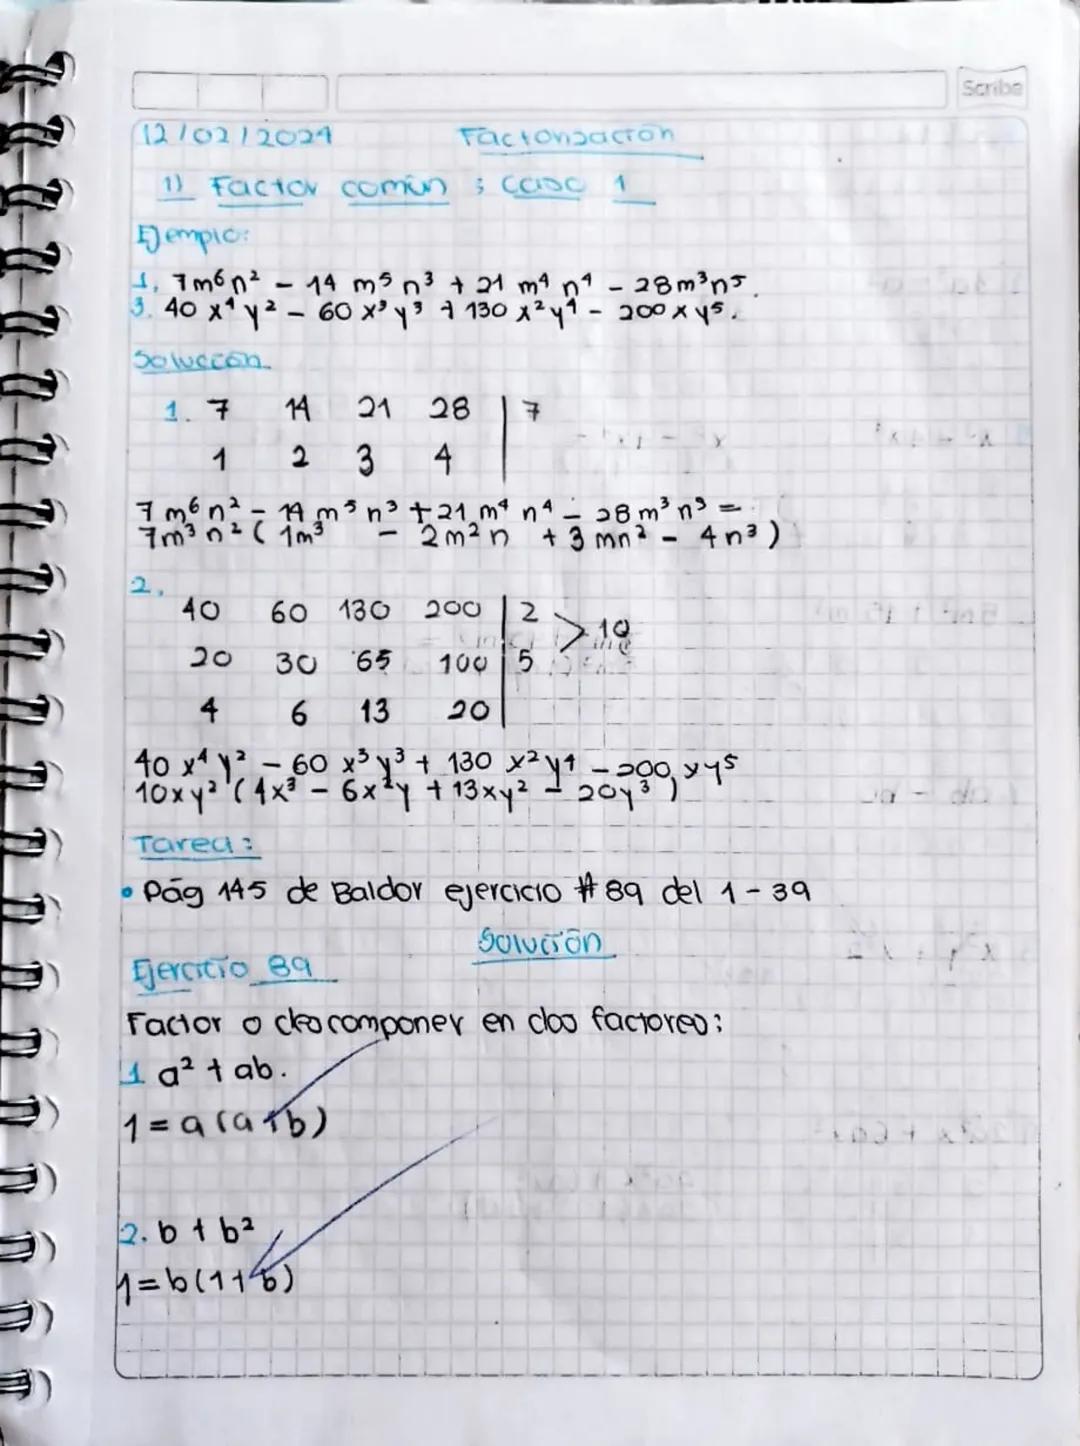 Scribe
12/02/2024 Factorización
1) Factor común ; caso 1
Ejemplo:
1. 7m⁶n² - 14 m⁵n³ + 21 m⁴n⁴ - 28m³n⁵.
3. 40 x⁴y² - 60 x³y³ + 130 x²y⁴ - 200xy⁵.
Solución
1. 7 14 21 28 | 7
1 2 3 4
7m⁶n² - 14m⁵n³ + 21m⁴n⁴ - 28m³n⁵ =
7m³n² ( 1m³ - 2m²n + 3mn² - 4n³)
2.
40 60 130 200 | 2 > 10
20 30 65 100 | 5
4 6 13 20
40x⁴y² - 60x³y³ + 130x²y⁴ - 200xy⁵
10xy² (4x³ - 6x²y + 13xy² - 20y³)
Tarea:
• Pág 145 de Baldor ejercicio #89 del 1-39
Solución
Ejercicio 89
Factor o descomponer en dos factores:
1 a² + ab.
1 = a(a+b)
2. b + b²
1 = b(1+b)